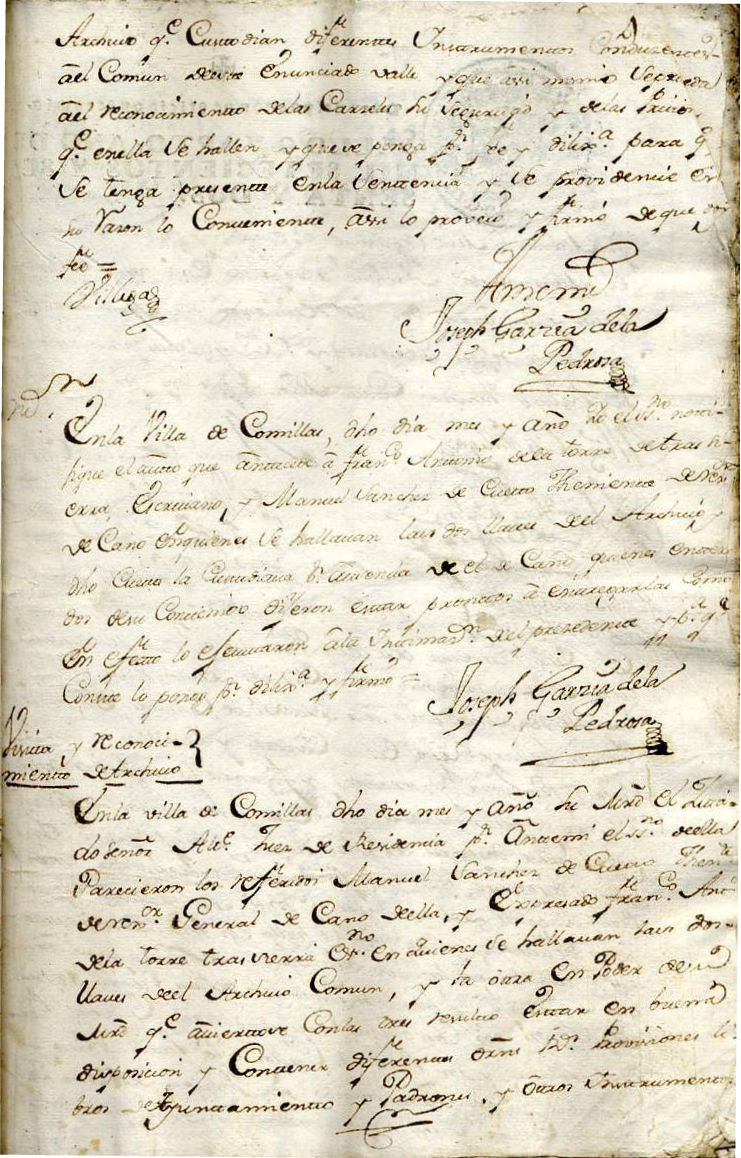 Archivo q.e Custodian diferentes Instrumentos Conduzentes
âel Comun deeste Enunciado valle y que assi mismo Se proceda
âel reconocimiento delas Carzeles su Seguridad y delas
q.e enella Se hallen y que se ponga p.r fee y dilix.a para q.e
Se tenga presente enla Sentencia y Se providencie en
su razon lo Conveniente, âssi lo proveió y firmó de que doi
fee =
Antemi
Joseph Garzia dela
Pedrosa
Enla Villa de Comillas, dho dia mes y año Yo el ss.no noti-
fique el âutto que ântecede â fran.co Antonio dela torre detras si-
erra Escrivano, y Manuel Sanchez de Cueto Theniente de
de Cano En quienes Se hallavan las dos llaves del Archivo, y
dho Cueto la Custodiava p.r âusencia de el de Cano quienes entera
dos desu Contenido dijeron estar promptos â entregarlas Como
En efecto lo ejecutaron âla Intimaz.on del presedente y p.a q.e
Conste lo pongo p.r dilix.a y firmé =
Joseph Garzia dela
Pedrosa
Visita y reconoci-
miento de Archivo
Enla villa de Comillas dho dia mes y año su Mrd el
do Señor Alc.e Juez de Residencia p.r Antemi el ss.no deella
Parecieron los referidos Manuel Sanchez de Cueto Then.te
General de Cano deella, y Expresado fran.co Ant.o
dela torre tras sierra Es.no en quienes Se hallavan las dos
llaves deel Archivo Comun, y la otra En Poder de su
Mrd q.e âvierto se Conlas tres resulto Estar en buena
disposicion y Contener diferentes Provisiones li-
bros de Ayuntamiento y Padrones, y otros Instrumentos